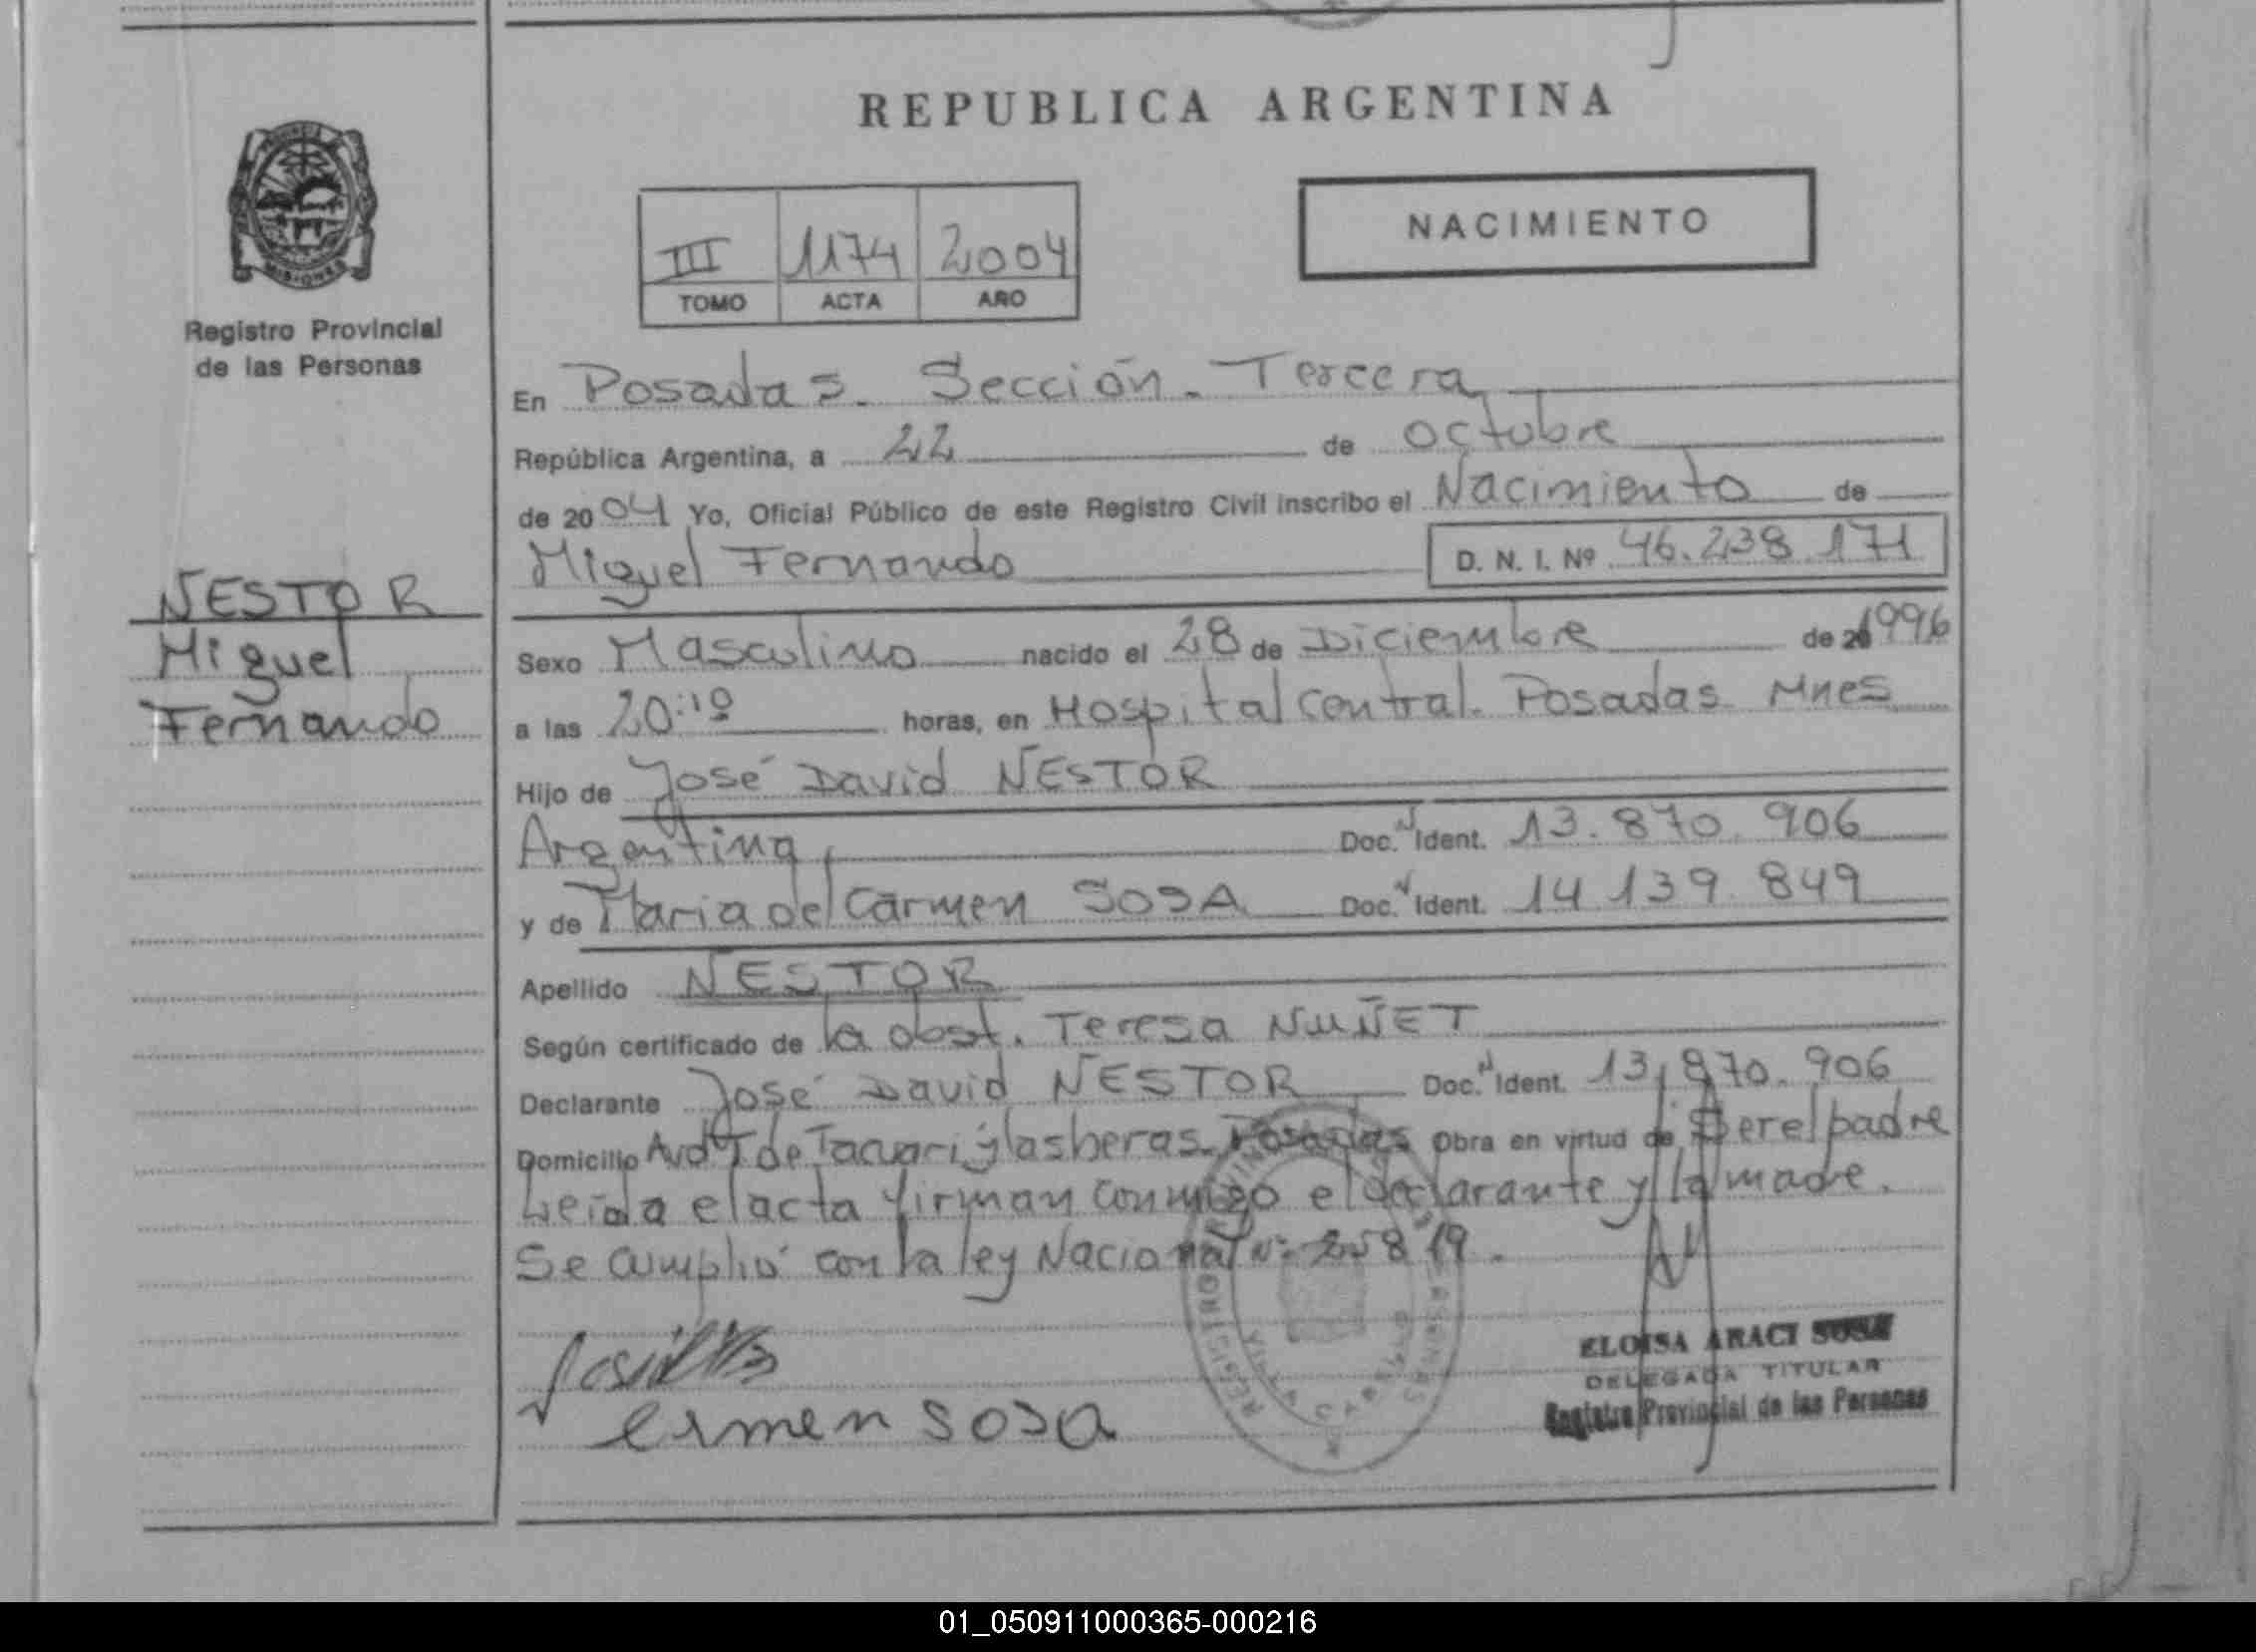 REPUBLICA ARGENTINA
NACIMIENTO
III 1174 2004
TOMO ACTA AÑO
MISIONES
Registro Provincial
de las Personas
NESTOR
Miguel
Fernando
En Posadas. Sección. Tercera
República Argentina, a 22 de octubre
de 2004 Yo, Oficial Público de este Registro Civil inscribo el Nacimiento de
Miguel Fernando D. N. I. Nº 46.238.171
Sexo Masculino nacido el 28 de Diciembre de 1996
a las 20:10 horas, en Hospital Central. Posadas Mnes
Hijo de José David NESTOR
Argentina, Doc. Ident. 13.870.906
y de Maria del Carmen SOSA Doc. Ident. 14 139 849
Apellido NESTOR
Según certificado de la obst. Teresa NUÑET
Declarante José David NESTOR Doc. Ident. 13.870.906
Domicilio Avd T de Tacuari y las heras. Posadas Obra en virtud de Ser el padre
Leida el acta firman conmigo el declarante y la madre.
Se cumplió con la ley Nacional Nº 25819.
ermen sosa
ELOISA ARACI SOSA
DELEGADA TITULAR
Registro Provincial de las Personas
01_050911000365-000216